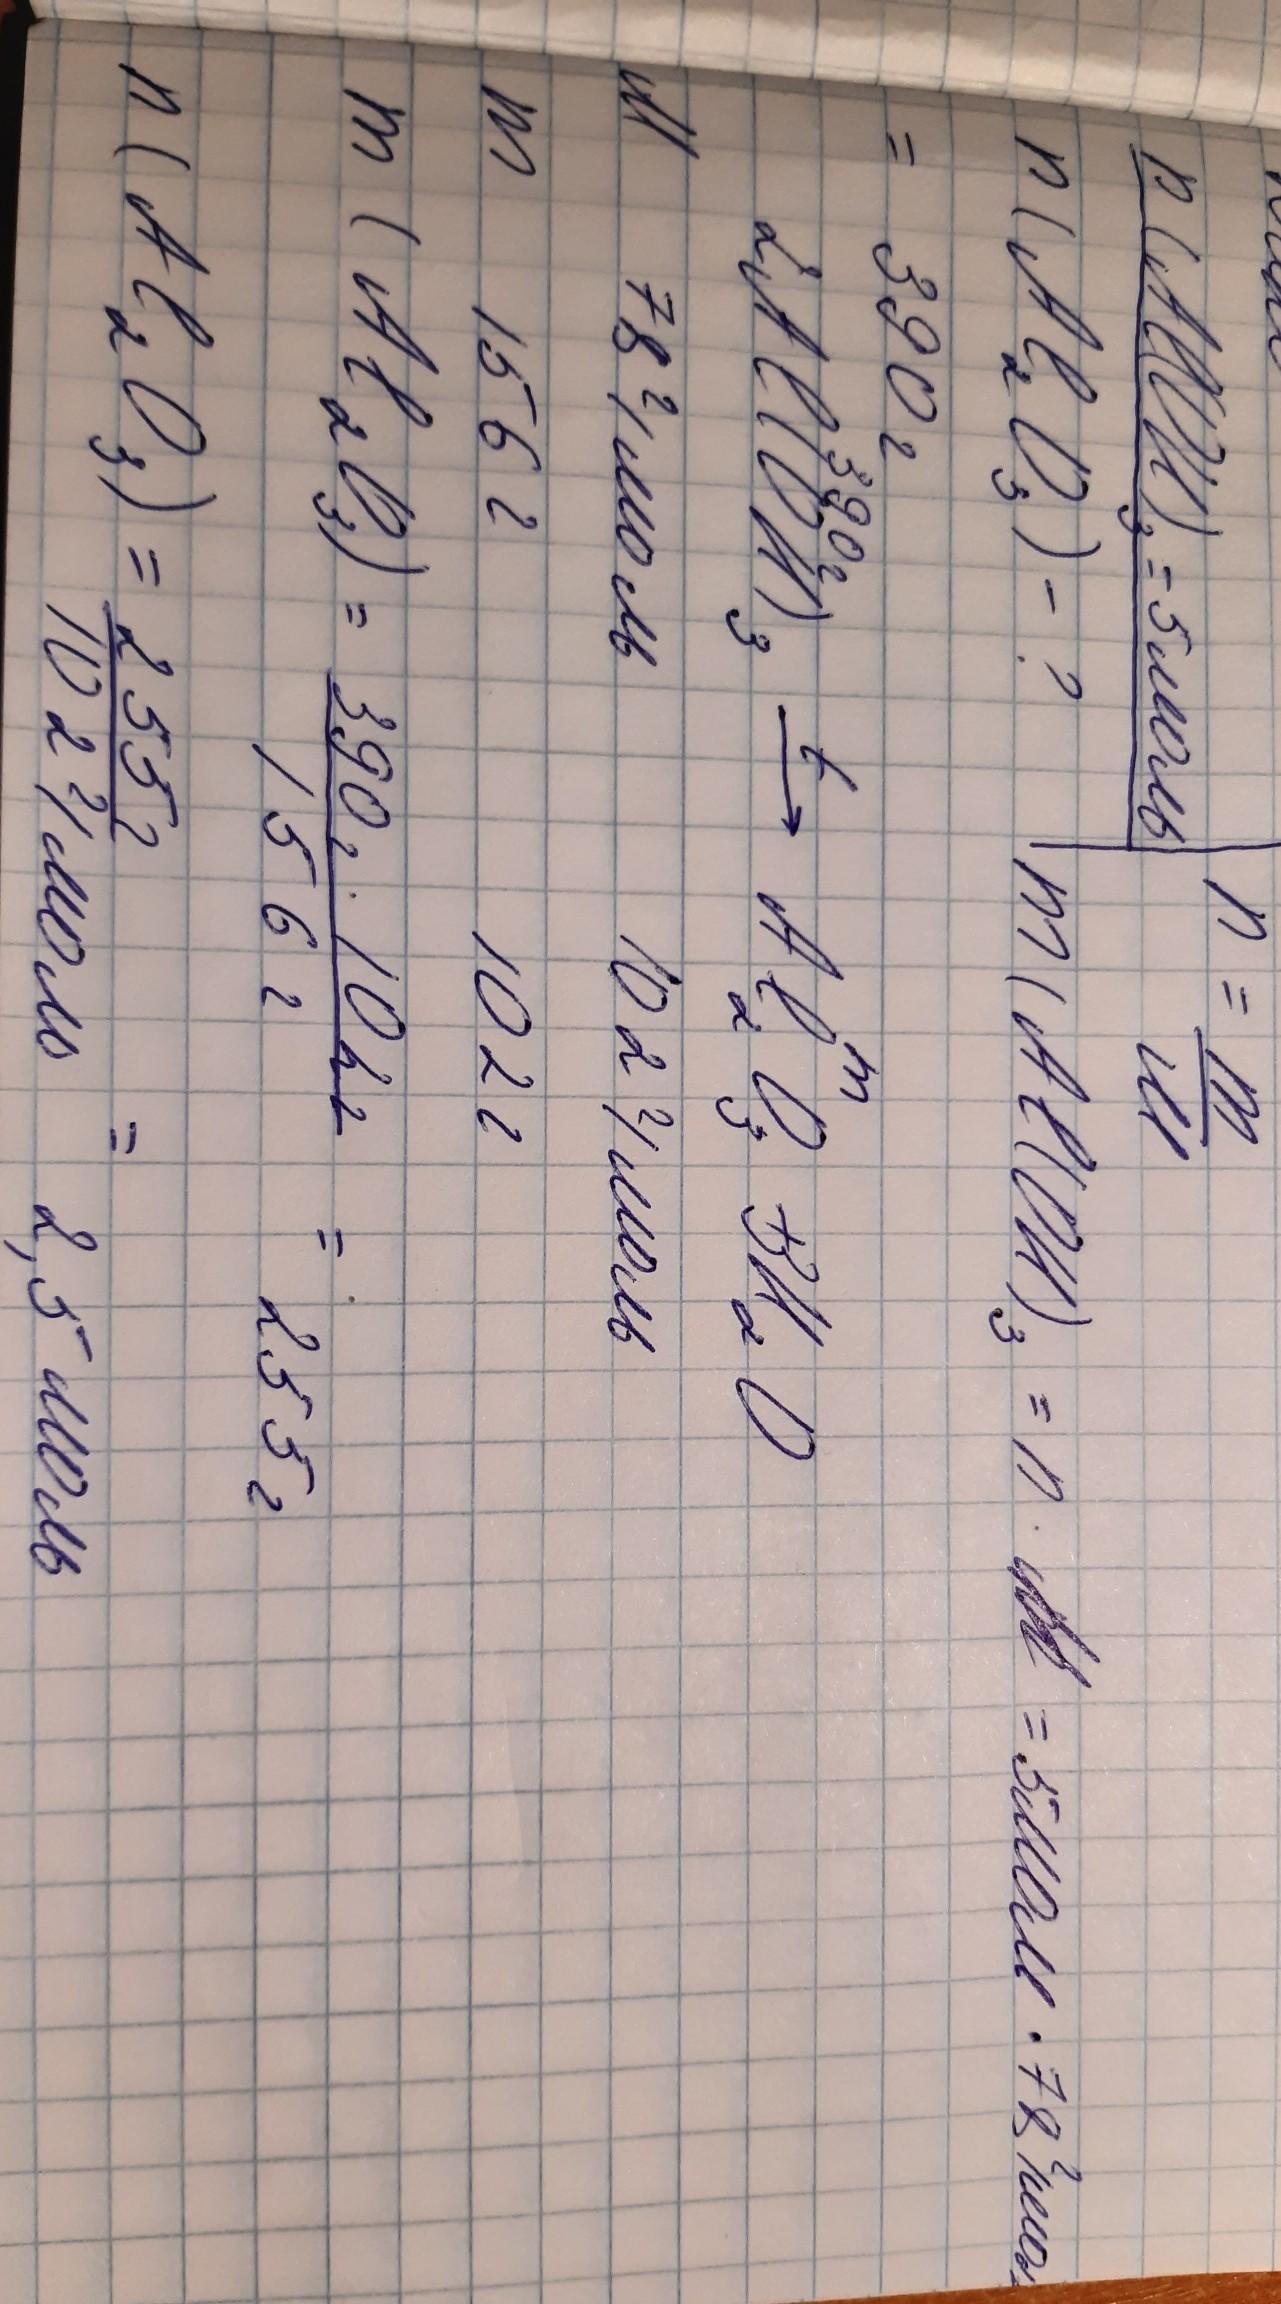 n(Al(OH)₃ = 5моль
n = m/M
n(Al₂O₃) - ?
m(Al(OH)₃ = n · M = 5моль · 78 г/мо
= 390г
390г m
2Al(OH)₃ →t Al₂O₃ + 3H₂O
M 78 г/моль 102 г/моль
m 156 г 102 г
m(Al₂O₃) = 390г · 102г / 156 г = 255г
n(Al₂O₃) = 255г / 102 г/моль = 2,5 моль